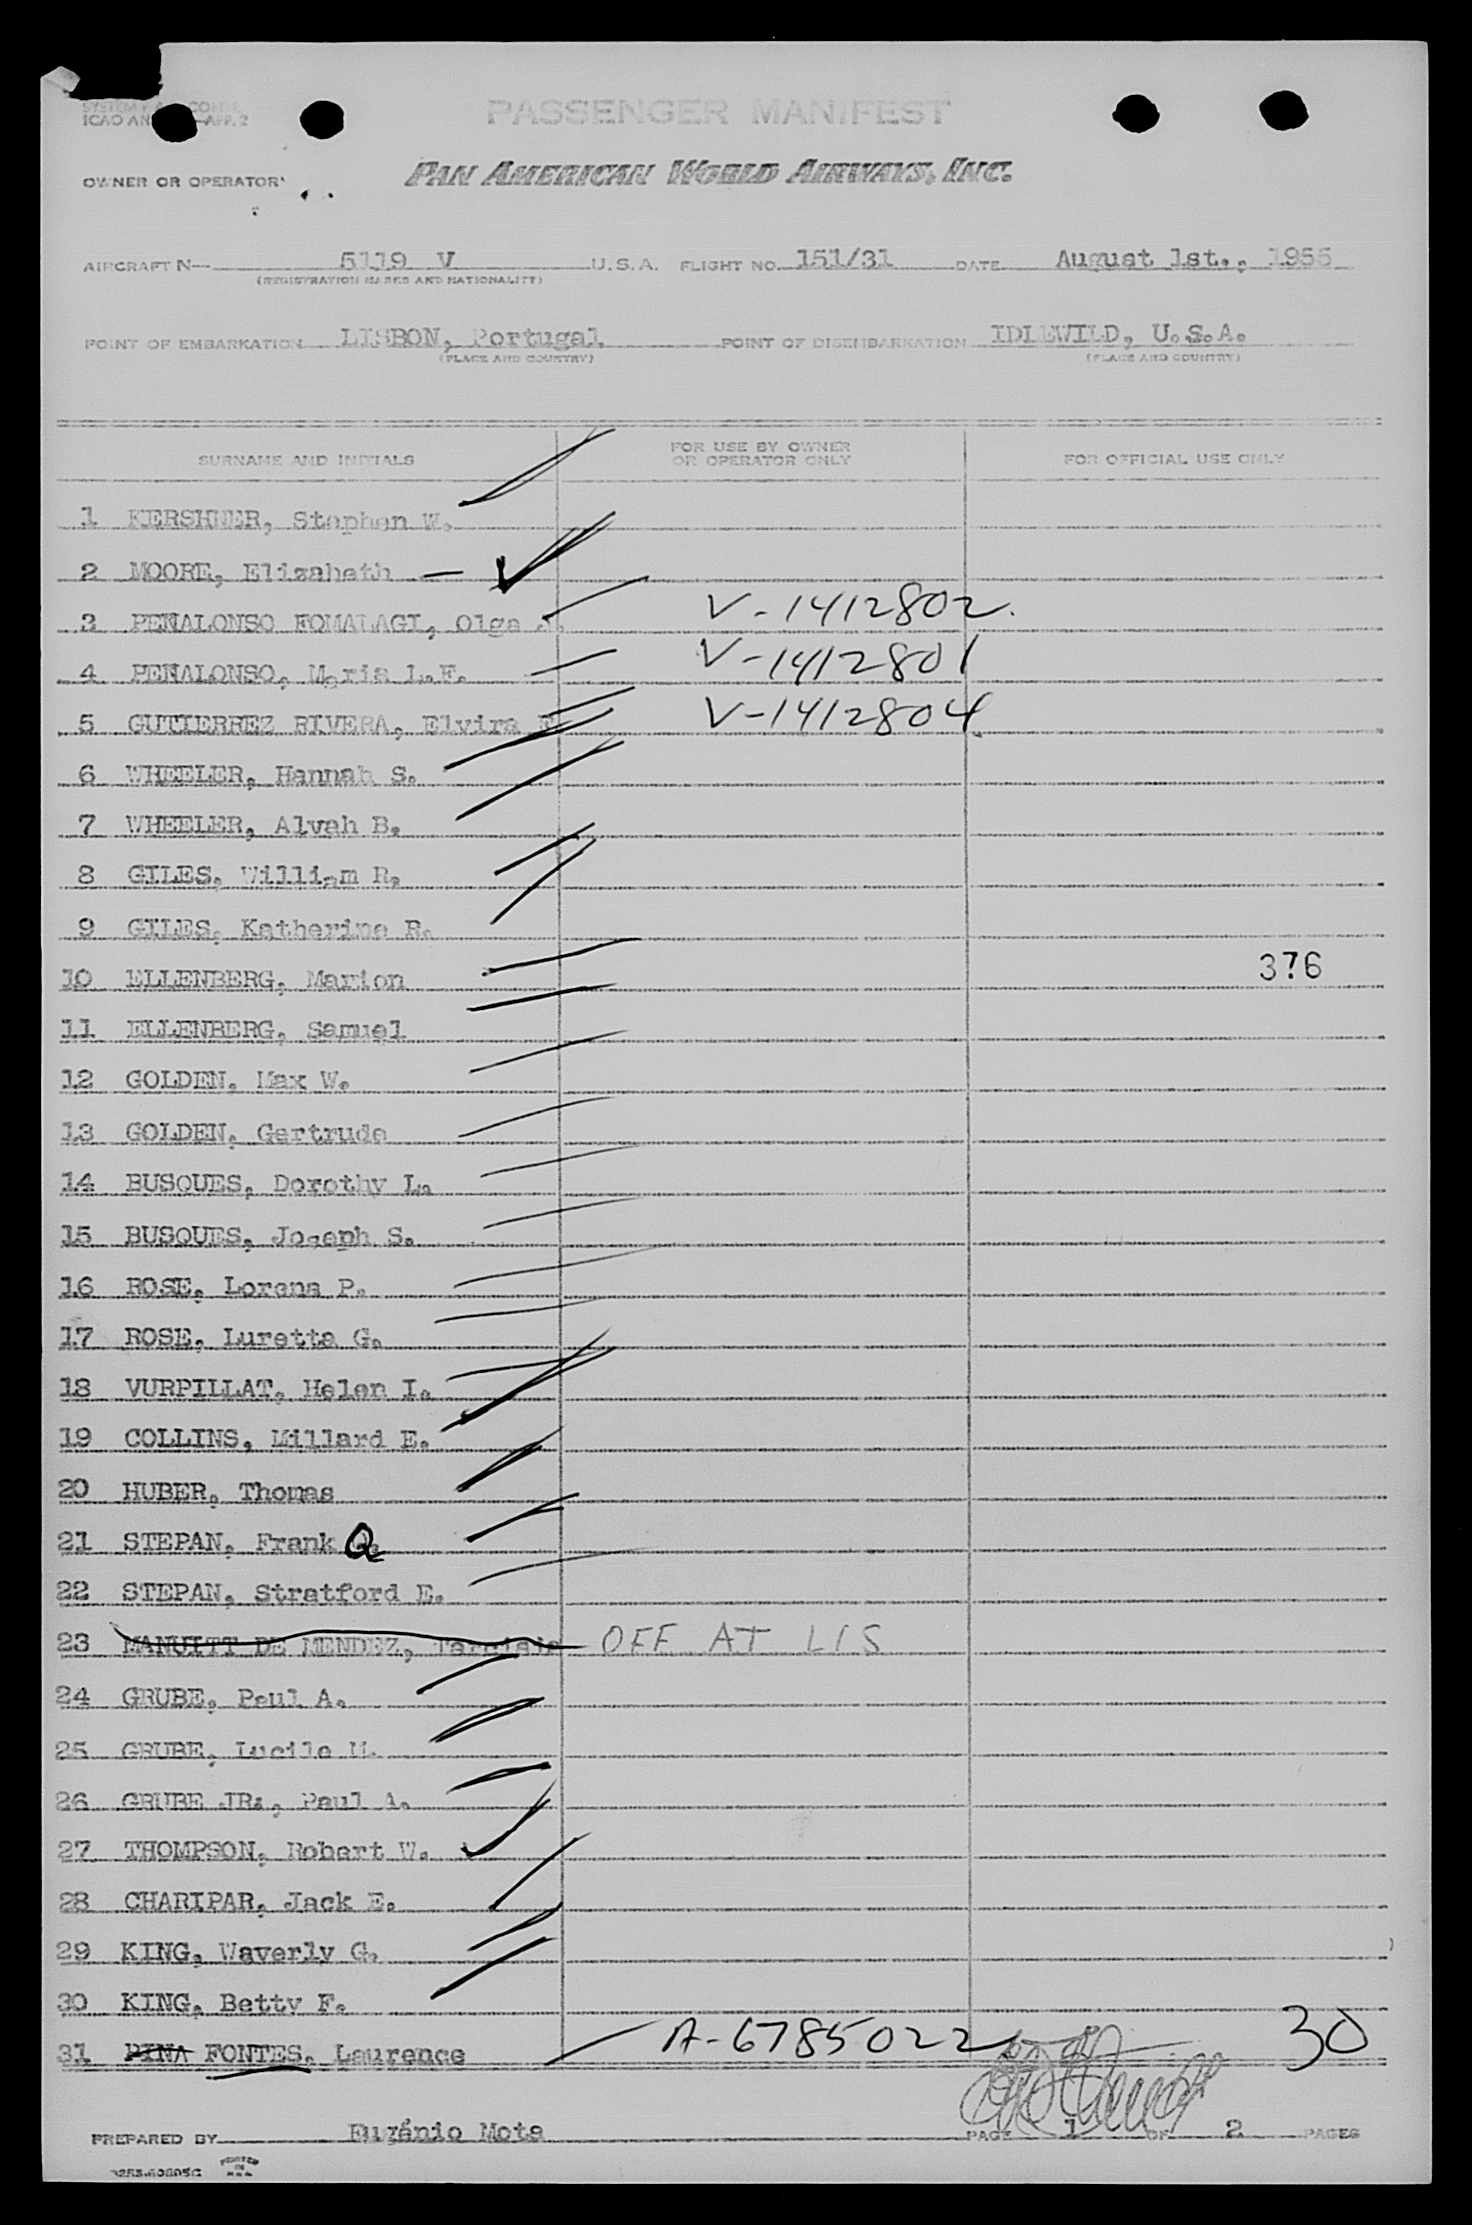 PASSENGER MANIFEST
ICAO AN
OWNER OR OPERATOR
PAN AMERICAN WORLD AIRWAYS, INC.
AIRCRAFT N— 5119 V U.S.A. FLIGHT NO. 151/31 DATE August 1st., 1955
(REGISTRATION MARKS AND NATIONALITY)
POINT OF EMBARKATION LISBON, Portugal POINT OF DISEMBARKATION IDLEWILD, U.S.A.
(PLACE AND COUNTRY) (PLACE AND COUNTRY)
SURNAME AND INITIALS FOR USE BY OWNER OR OPERATOR ONLY FOR OFFICIAL USE ONLY
1 KERSHNER, Stephen W.
2 MOORE, Elizabeth —
3 PEÑALONSO FOMALAGI, Olga J. V-1412802.
4 PEÑALONSO, Maria L.F. V-1412801
5 GUTIERREZ RIVERA, Elvira F V-1412804
6 WHEELER, Hannah S.
7 WHEELER, Alvah B.
8 GILES, William R.
9 GILES, Katherine R.
10 ELLENBERG, Marion 376
11 ELLENBERG, Samuel
12 GOLDEN, Max W.
13 GOLDEN, Gertrude
14 BUSQUES, Dorothy L.
15 BUSQUES, Joseph S.
16 ROSE, Lorena P.
17 ROSE, Luretta G.
18 VURPILLAT, Helen I.
19 COLLINS, Millard E.
20 HUBER, Thomas
21 STEPAN, Frank Q.
22 STEPAN, Stratford E.
23 MANUITT DE MENDEZ, OFF AT LIS
24 GRUBE, Paul A.
25 GRUBE, Lucile M.
26 GRUBE JR., Paul A.
27 THOMPSON, Robert W.
28 CHARIPAR, Jack E.
29 KING, Waverly G.
30 KING, Betty F.
31 PINA FONTES, Laurence A-6785022 30
PREPARED BY Eugénio Mota PAGE 1 OF 2 PAGES
PRINTED IN